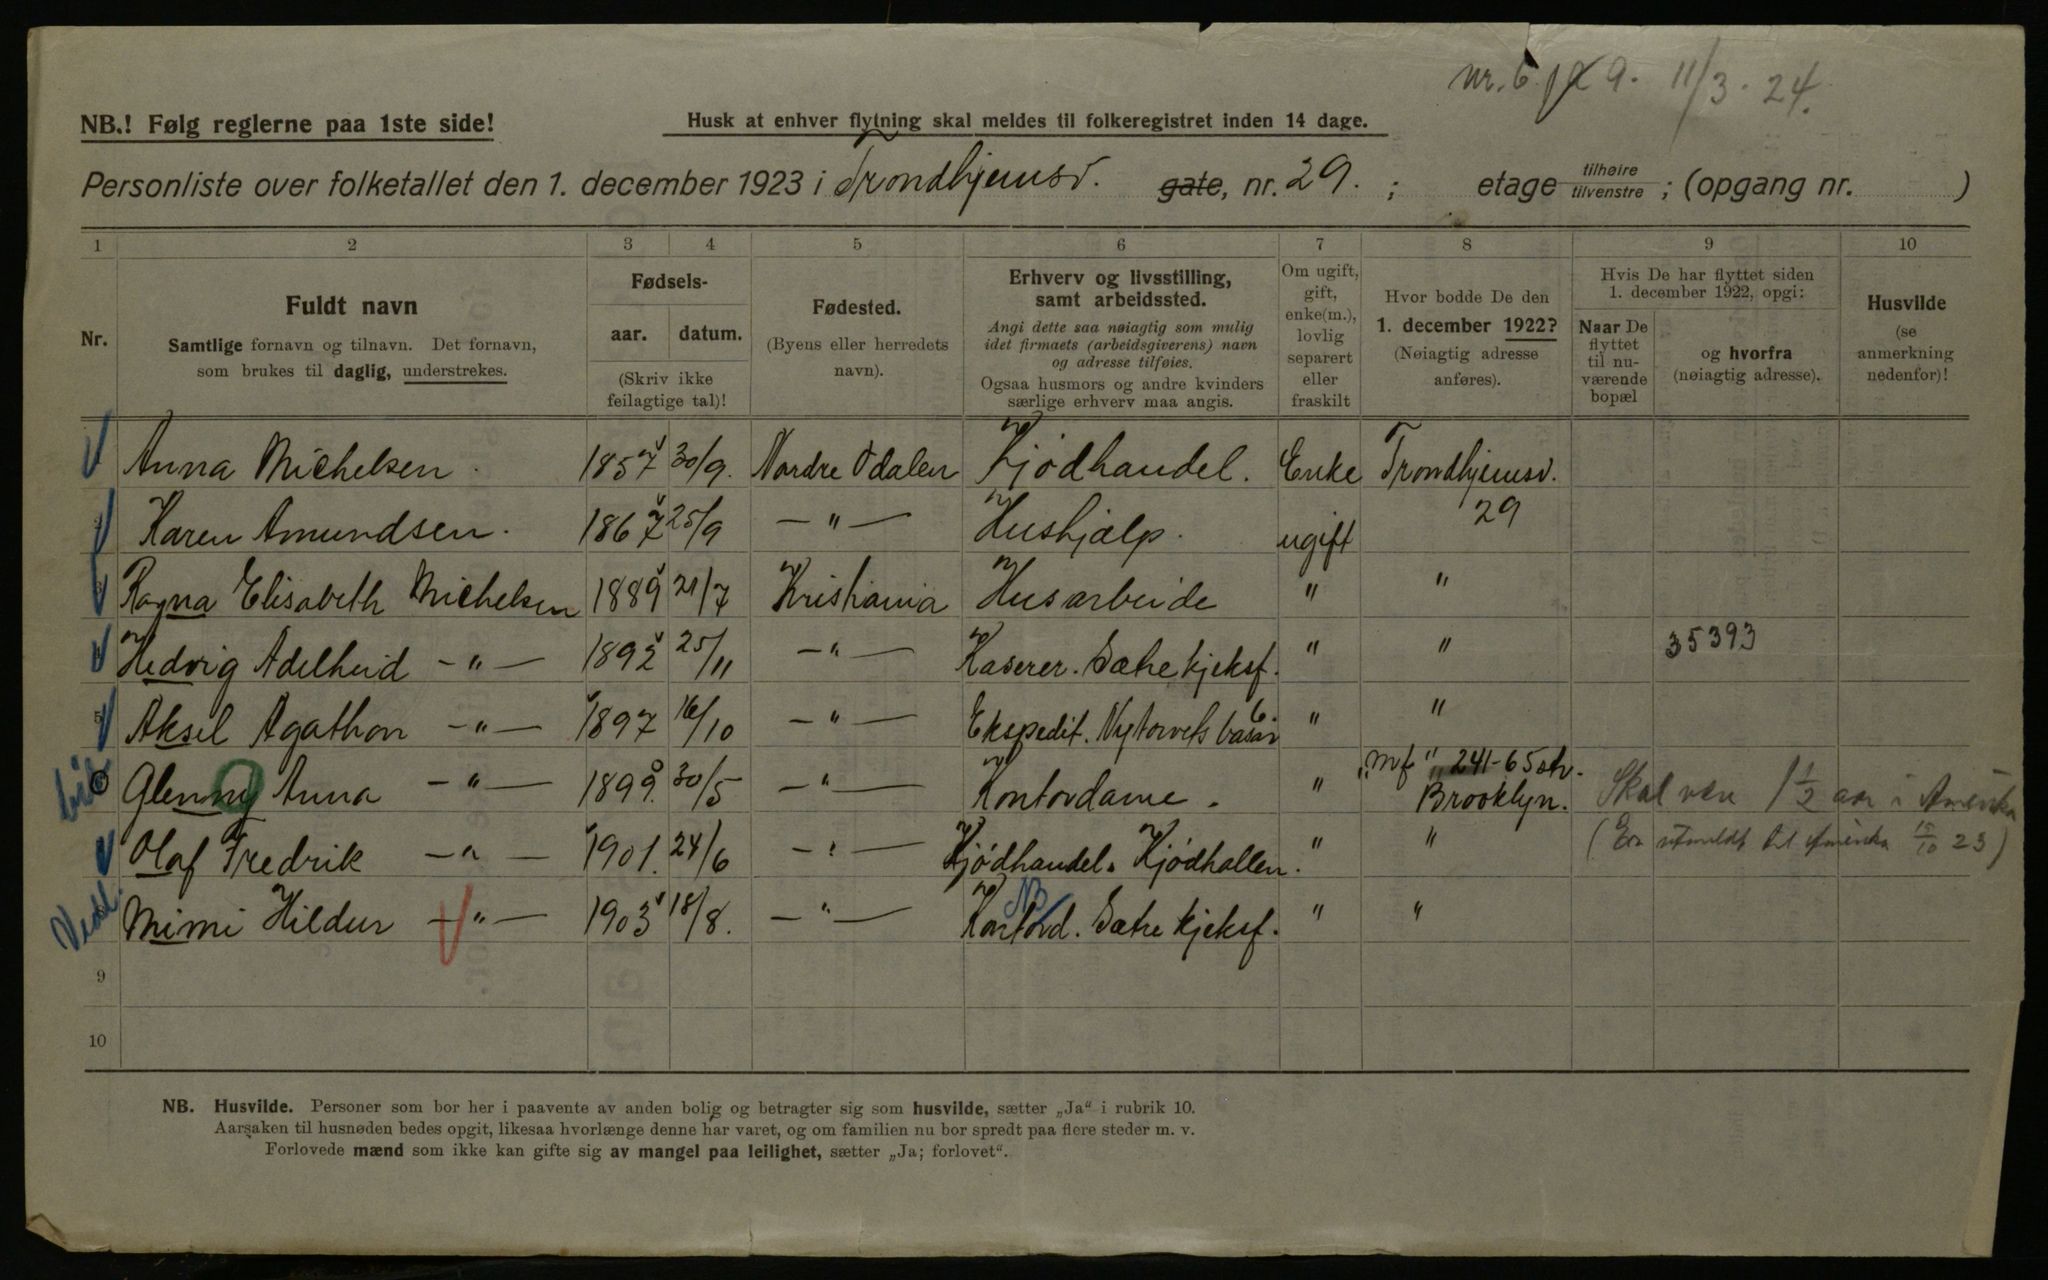 nr. 6 9. 11/3. 24.
NB.! Følg reglerne paa 1ste side!
Husk at enhver flytning skal meldes til folkeregistret inden 14 dage.
Personliste over folketallet den 1. december 1923 i Trondhjemsv. gate, nr. 29. ; etage tilhøire tilvenstre ; (opgang nr. )
1 2 3 4 5 6 7 8 9 10
Nr.
Fuldt navn
Samtlige fornavn og tilnavn. Det fornavn,
som brukes til daglig, understrekes.
Fødsels-
aar. datum.
(Skriv ikke
feilagtige tal)!
Fødested.
(Byens eller herredets
navn).
Erhverv og livsstilling,
samt arbeidssted.
Angi dette saa nøiagtig som mulig
idet firmaets (arbeidsgiverens) navn
og adresse tilføies.
Ogsaa husmors og andre kvinders
særlige erhverv maa angis.
Om ugift,
gift,
enke(m.),
lovlig
separert
eller
fraskilt
Hvor bodde De den
1. december 1922?
(Nøiagtig adresse
anføres).
Hvis De har flyttet siden
1. december 1922, opgi:
Naar De
flyttet
til nu-
værende
bopæl
og hvorfra
(nøiagtig adresse).
Husvilde
(se
anmerkning
nedenfor)!
Anna Michelsen. 1857 30/9. Nordre Odalen Kjødhandel. Enke Trondhjemsv.
Karen Amundsen. 1867 25/9 — " — Hushjælp. ugift 29
Ragna Elisabeth Michelsen 1889 21/7 Kristiania Husarbeide " "
Hedvig Adelheid — " — 1892 25/11 — " — Kaserer. Sætre kjeksf. " " 35393
5 Aksel Agathon — " — 1897 16/10 — " — Ekspedit. Nytorvets basar 6. " "
Glenny Anna — " — 1899. 30/5 — " — Kontordame. " " 241-65 str. Brooklyn. Skal være 1 1/2 aar i Amerika
Olaf Fredrik — " — 1901. 24/6 — " — Kjødhandel. Kjødhallen. " " (Er utmeldt til Amerika 15/10 23)
Mimi Hildur — " — 1903 18/8. — " — NB Kontord. Sætre kjeksf. " "
9
10
NB. Husvilde. Personer som bor her i paavente av anden bolig og betragter sig som husvilde, sætter „Ja" i rubrik 10.
Aarsaken til husnøden bedes opgit, likesaa hvorlænge denne har varet, og om familien nu bor spredt paa flere steder m. v.
Forlovede mænd som ikke kan gifte sig av mangel paa leilighet, sætter „Ja; forlovet".